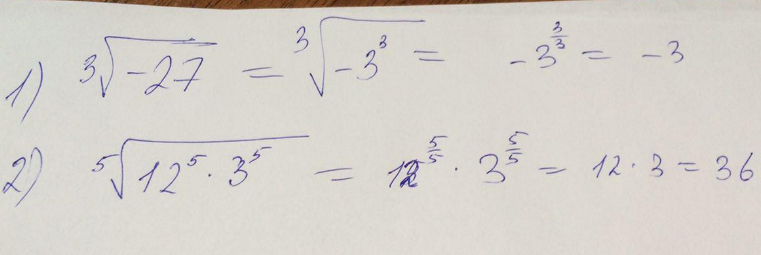 1) ∛(-27) = ∛(-3³) = -3^(3/3) = -3
2) ⁵√(12⁵ · 3⁵) = 12^(5/5) · 3^(5/5) = 12 · 3 = 36